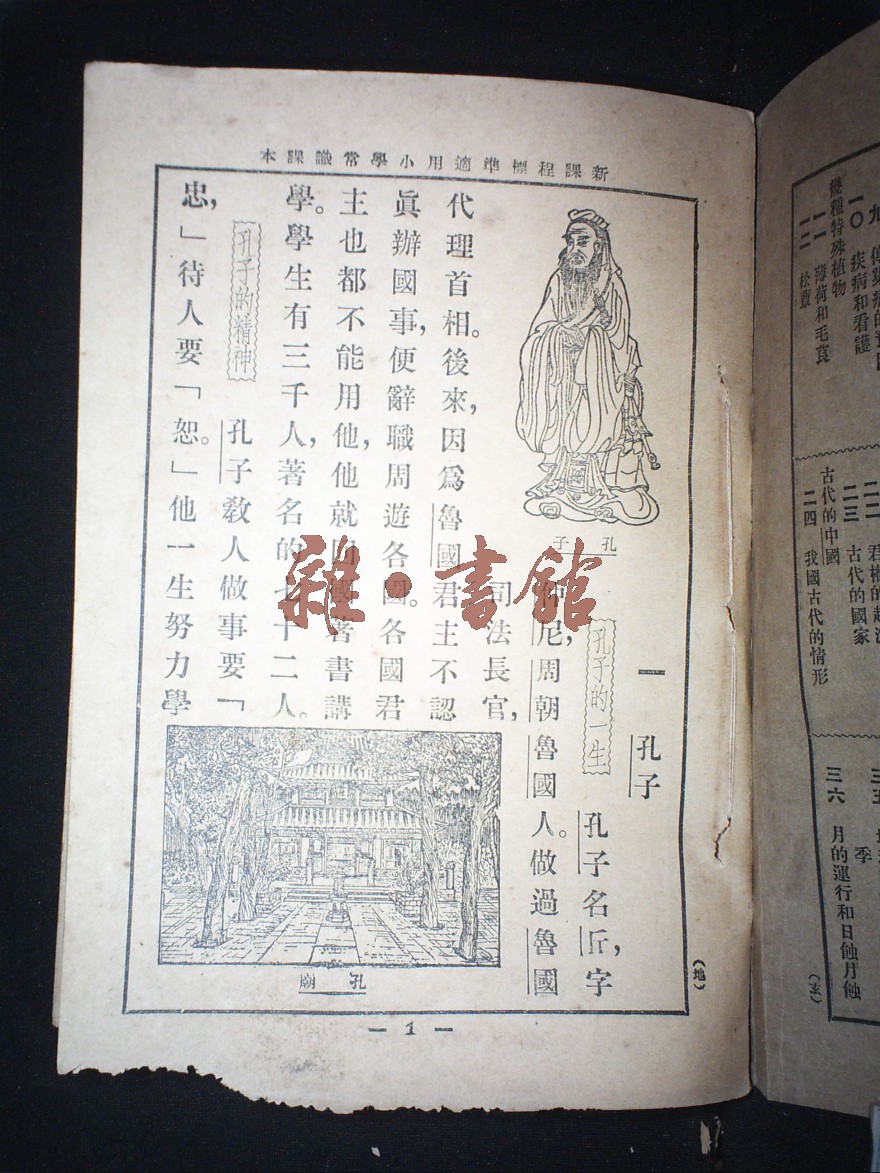 新課程標準適用小學常識課本
孔子
一 孔子
孔子的一生 孔子名丘,字
仲尼,周朝魯國人。做過魯國
司法長官,
代理首相。後來,因爲魯國君主不認
眞辦國事,便辭職周遊各國。各國君
主也都不能用他,他就回國著書講
學。學生有三千人,著名的七十二人。
孔子的精神 孔子敎人做事要「
忠,」待人要「恕。」他一生努力學
孔廟
(地)
— 1 —
雜·書館
九
一〇 疾病和看護
幾種特殊植物
一一 薄荷和毛茛
一二 松蕈
二二 君權的起
二三 古代的國家
古代的中國
二四 我國古代的情形
三五
季
三六 月的運行和日蝕月蝕
(玄)